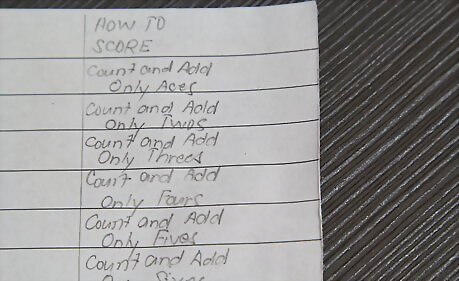 HOW TO
SCORE
Count and Add
Only Aces
Count and Add
Only Twos
Count and Add
Only Threes
Count and Add
Only Fours
Count and Add
Only Fives
Count and Add
Only Sixes